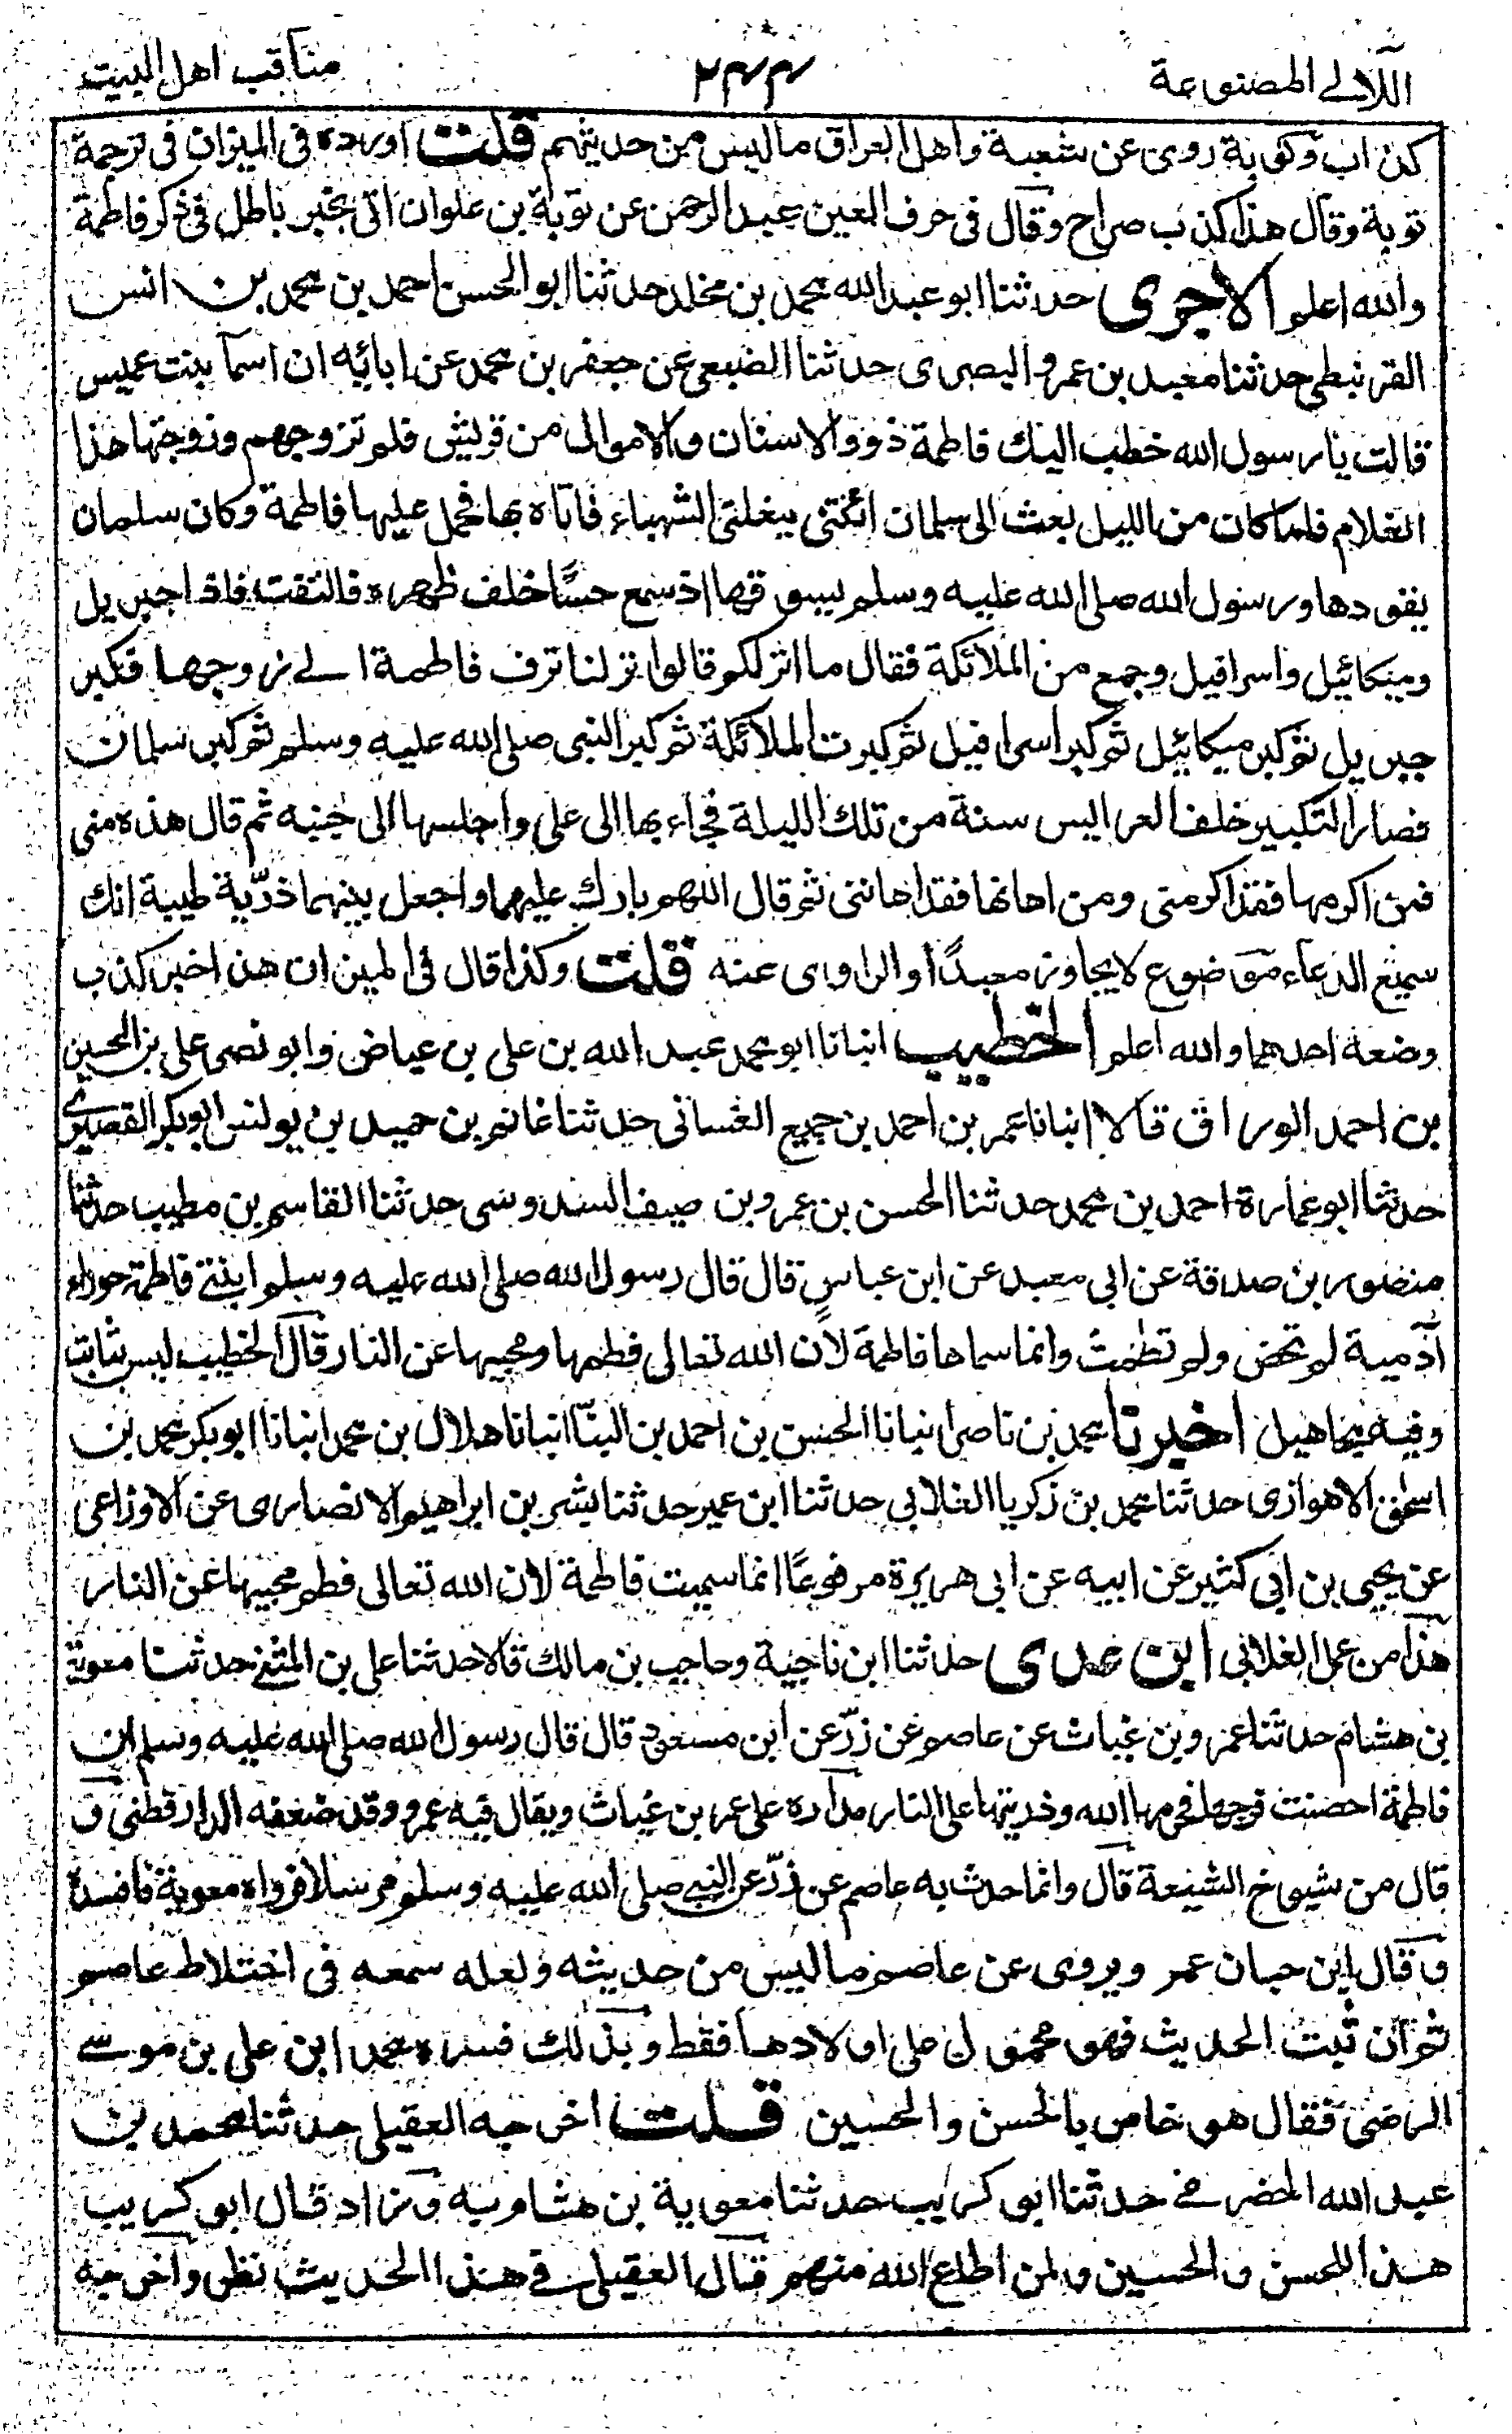 اللآلي المصنوعة
٢٤٤
مناقب اهل البيت
كذاب وكوبة روى عن شعبة واهل العراق ماليس من حديثهم قلت اورده في الميزان في ترجمة
توبة وقال هذا كذب صراح وقال في حرف العين عبد الرحمن عن توبة بن علوان اتى بخبر باطل في ذكر فاطمة
والله اعلم الاجرى حدثنا ابو عبد الله محمد بن مخلد حدثنا ابو الحسن احمد بن محمد بن انس
القرنبطى حدثنا معبد بن عمرو البصرى حدثنا الضبعي عن جعفر بن محمد عن ابائه ان اسمآ بنت عميس
قالت يا رسول الله خطب اليك فاطمة ذوو الاسنان والاموال من قريش فلم تزوجهم وزوجتها هذا
الغلام فلما كان من الليل بعث الى سلمان ائتنى ببغلتى الشهباء فاتاه بها فحمل عليها فاطمة وكان سلمان
يقودها ورسول الله صلى الله عليه وسلم يسوقها اذ سمع حسًّا خلف ظهره فالتفت فاذا جبريل
وميكائيل واسرافيل وجمع من الملائكة فقال ما انزلكم قالوا نزلنا نزف فاطمة الے زوجها فكبر
جبريل ثم كبر ميكائيل ثم كبر اسرافيل ثم كبرت الملائكة ثم كبر النبي صلى الله عليه وسلم ثم كبر سلمان
فصار التكبير خلف العرايس سنة من تلك الليلة فجاء بها الى على واجلسها الى جنبه ثم قال هذه منى
فمن اكرمها فقد اكرمنى ومن اهانها فقد اهاننى ثم قال اللهم بارك عليهما واجعل بينهما ذرّية طيبة انك
سميع الدعاء موضوع لايجاوز معبدًا او الراوى عنه قلت وكذا قال فى الميزان هذا خبر كذب
وضعه احدهما والله اعلم الخطيب انبانا ابو محمد عبد الله بن على بن عياض وابو نصر على بن الحسين
بن احمد الوراق قالا انبانا عمر بن احمد بن جميع الغسانى حدثنا غانم بن حميد بن يونس ابو بكر القصيرى
حدثنا ابو عمارة احمد بن محمد حدثنا الحسن بن عمرو بن صيف السدوسى حدثنا القاسم بن مطيب حدثنا
منصور بن صدقة عن ابى معبد عن ابن عباس قال قال رسول الله صلى الله عليه وسلم ابنتے فاطمة حوراء
آدمية لم تحض ولم تطمث وانما سماها فاطمة لان الله تعالى فطمها ومحبيها عن النار قال الخطيب ليس بثابت
وفيه مجاهيل اخبرنا محمد بن ناصر انبانا الحسن بن احمد بن البنّا انبانا هلال بن محمد انبانا ابو بكر محمد بن
اسحٰق الاهوازى حدثنا محمد بن زكريا الغلابي حدثنا ابن عمير حدثنا بشر بن ابراهيم الانصارى عن الاوزاعى
عن يحيى بن ابي كثير عن ابيه عن ابى هريرة مرفوعًا انما سميت فاطمة لان الله تعالى فطم محبيها عن النار
هذا من عمل الغلابى ابن عدى حدثنا ابن ناجية وحاجب بن مالك قالا حدثنا على بن المثنے حدثنا معوية
بن هشام حدثنا عمرو بن غياث عن عاصم عن زرّ عن ابن مسعود قال قال رسول الله صلى الله عليه وسلم ان
فاطمة احصنت فرجها فحرمها الله وذريتها على النار مداره على عمر بن غياث ويقال فيه عمرو وقد ضعفه الدارقطنى و
قال من شيوخ الشيعة قال وانما حدث به عاصم عن زرّ عن النبي صلى الله عليه وسلم مرسلا فرواه معوية فافسده
وقال ابن حبان عمر ويروى عن عاصم ماليس من حديثه ولعله سمعه فى اختلاط عاصم
ثم ان ثبت الحديث فهو محمول على اولادها فقط وبذلك فسره محمد ابن على بن موسے
الرضى فقال هو خاص بالحسن والحسين قلت اخرجه العقيلى حدثنا محمد بن
عبد الله الحضرمے حدثنا ابو كريب حدثنا معوية بن هشام به وزاد قال ابو كريب
هذا للحسن والحسين ولمن اطاع الله منهم قال العقيلى فے هذا الحديث نظر واخرجه